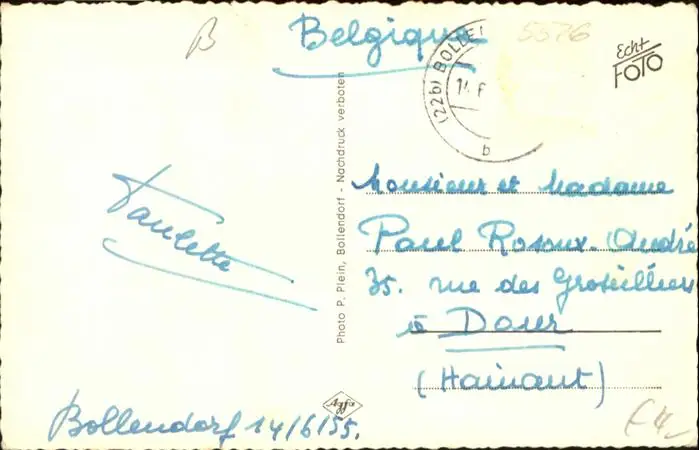 B
Belgique
5576
(22b) BOLLE
14. 6
b
Echt
FOTO
Photo P. Plein, Bollendorf - Nachdruck verboten
Agfa
Paulette
Bollendorf 14/6/55.
Monsieur et Madame
Paul Rosoux-André
35. rue des Groseilliers
à Dour
(Hainaut)